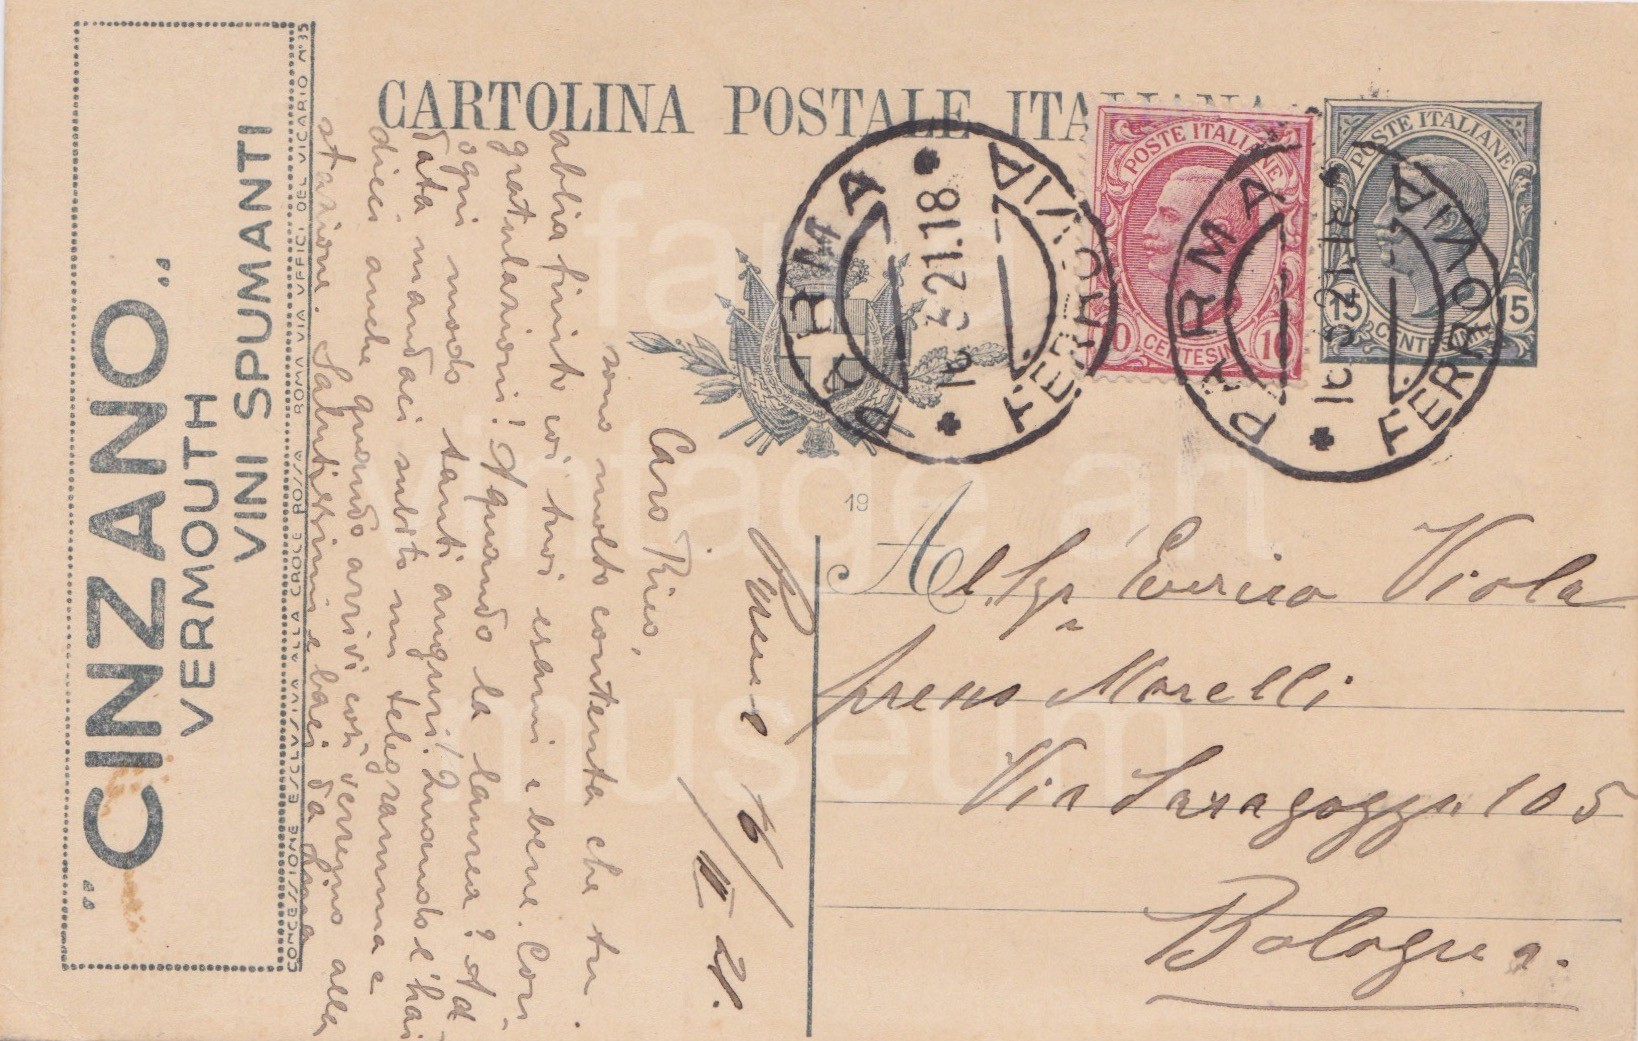 CARTOLINA POSTALE ITALIANA
"CINZANO"
VERMOUTH
VINI SPUMANTI
CONCESSIONE ESCLUSIVA ALLA CROCE ROSSA ROMA VIA UFFICI DEL VICARIO Nº35
POSTE ITALIANE
10 CENTESIMI 10
POSTE ITALIANE
15 CENTESIMI 15
PARMA
16 3 21.18
FERROVIA
PARMA
16 3 21.18
FERROVIA
19
Parma 16/III 21.
Caro Rico,
sono molto contenta che tu
abbia finito così tuoi esami e bene. Con-
gratulazioni! A quando la laurea? Ad
ogni modo tanti auguri! Quando l'hai
data mandaci subito un telegramma e
dicci anche quando arrivi così verremo alla
stazione. Salutissimi e baci da
Al. Sigr Enrico Viola
presso Morelli
Via Saragozza 105
Bologna.
farfa
vintage art
museum